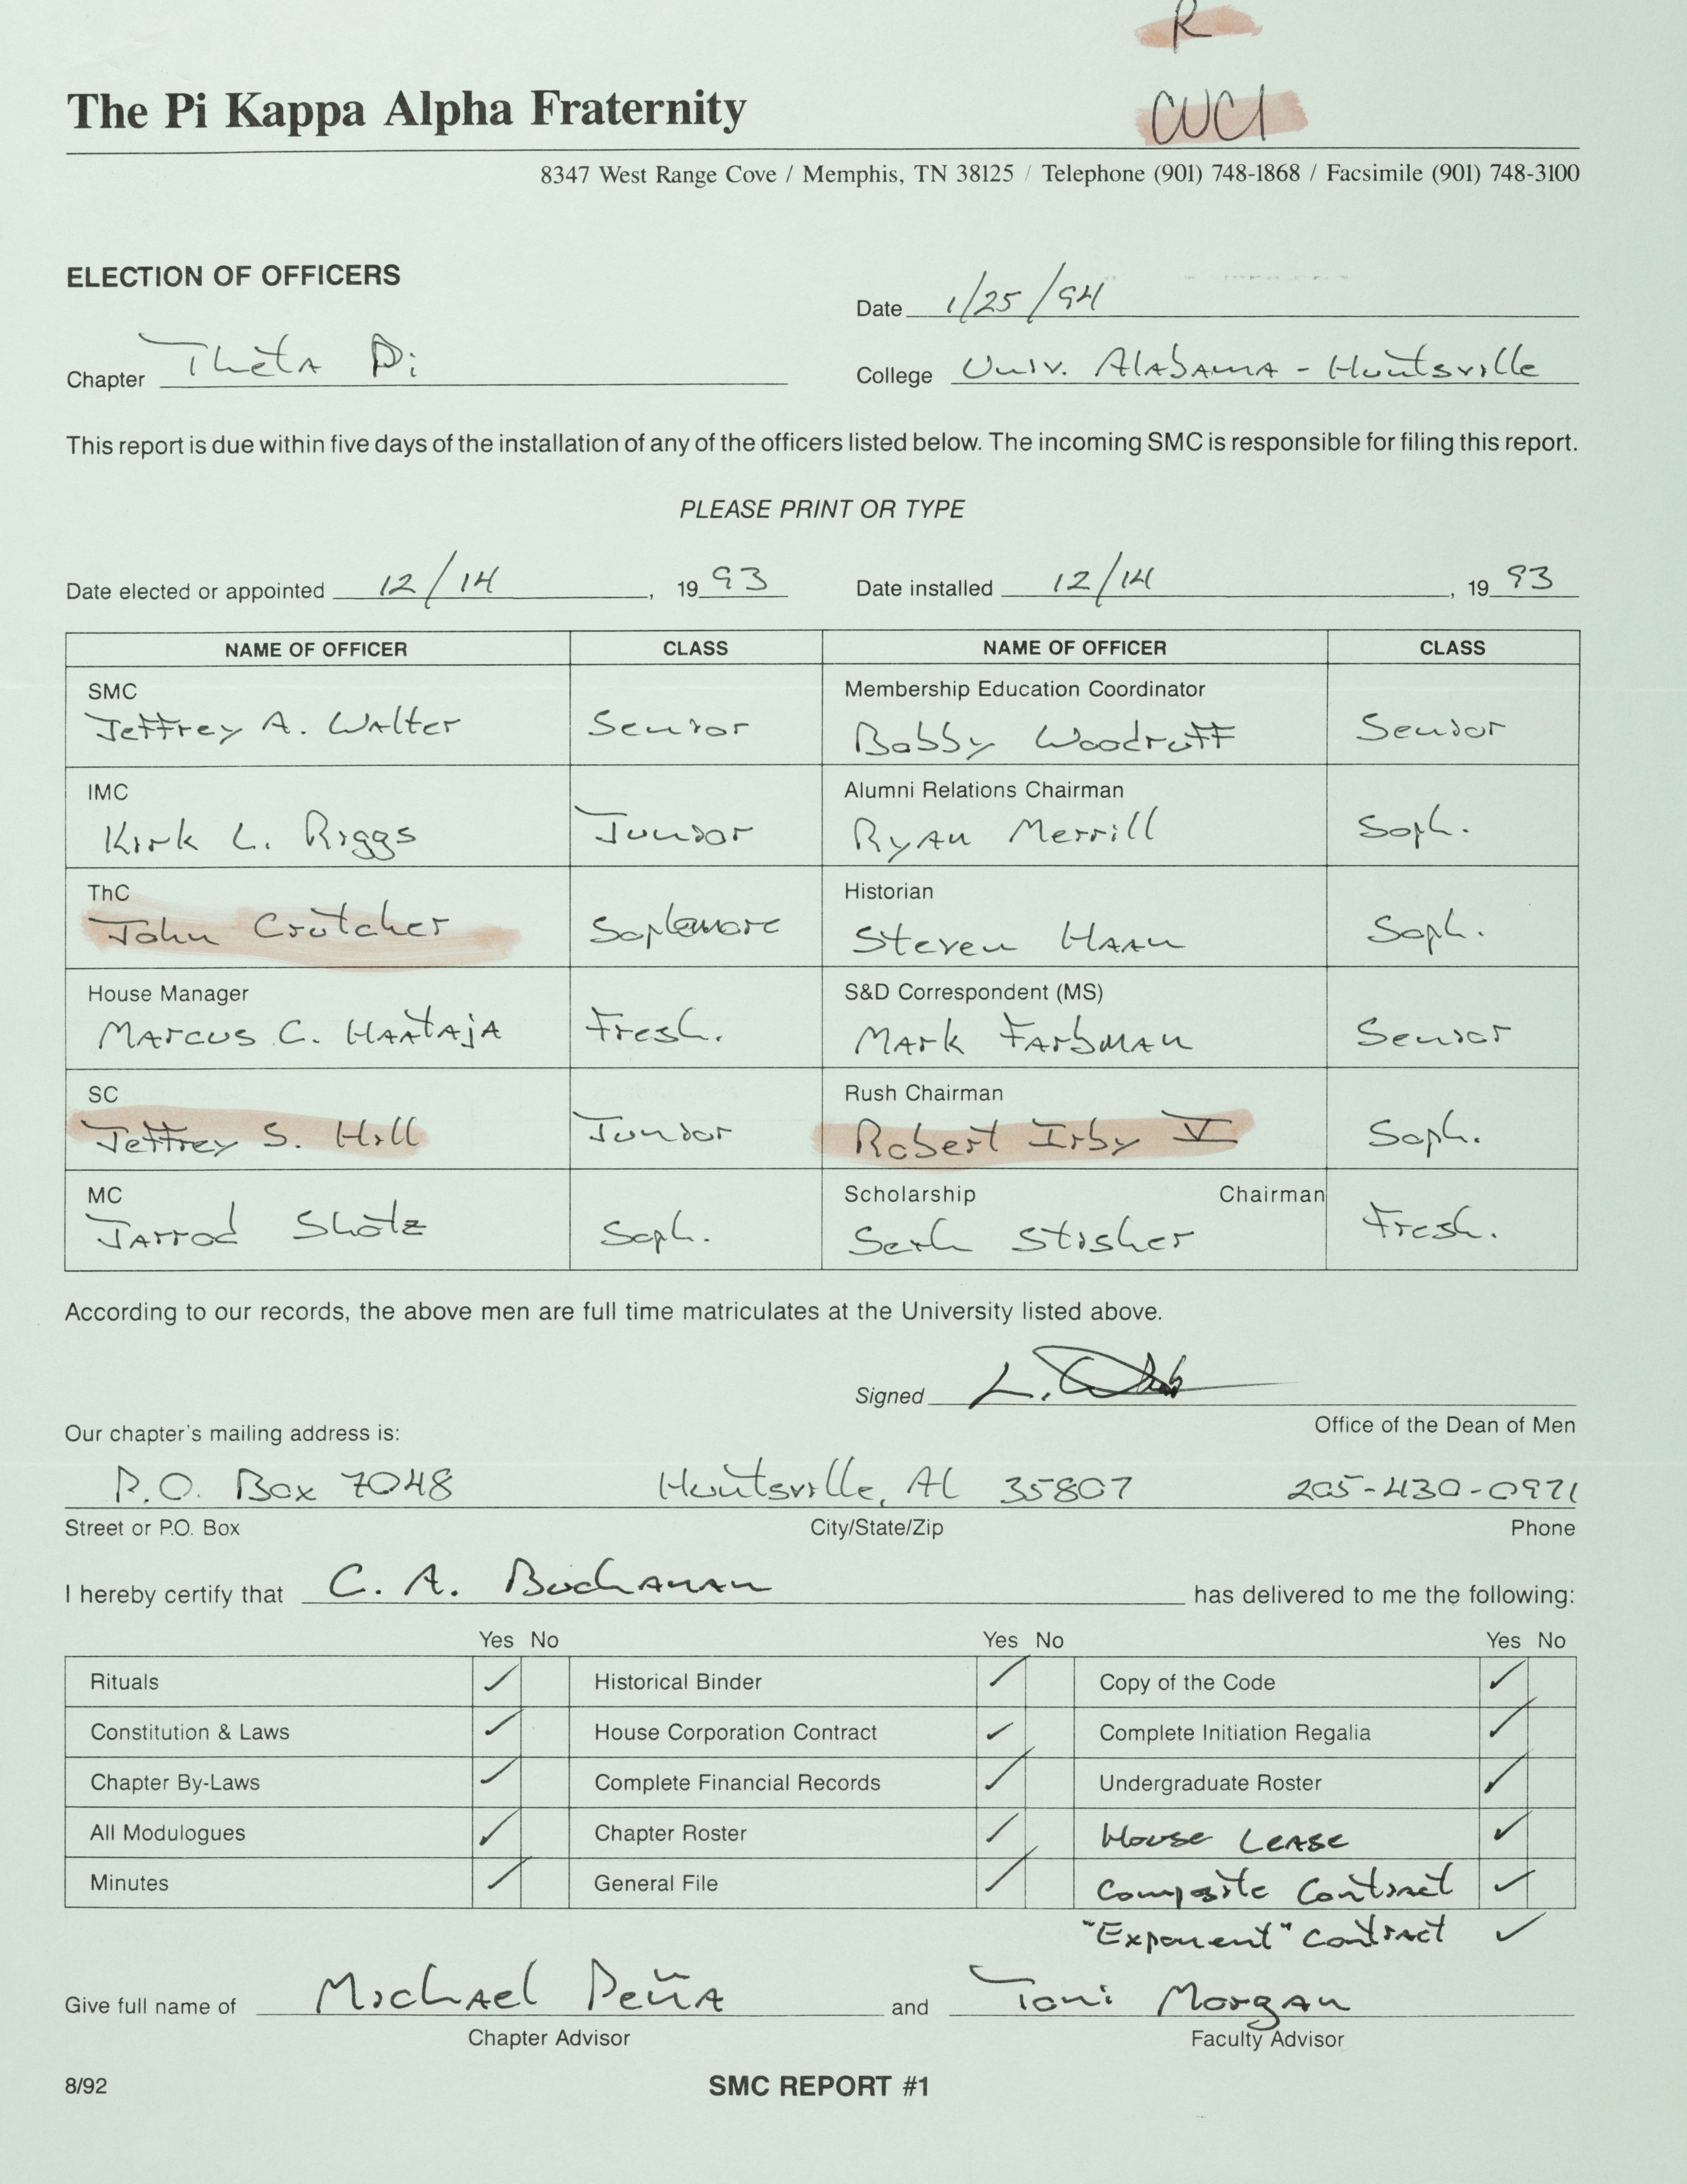 R
CUCI
The Pi Kappa Alpha Fraternity
8347 West Range Cove / Memphis, TN 38125 / Telephone (901) 748-1868 / Facsimile (901) 748-3100
ELECTION OF OFFICERS
Date 1/25/94
Chapter Theta Pi College Univ. Alabama - Huntsville
This report is due within five days of the installation of any of the officers listed below. The incoming SMC is responsible for filing this report.
PLEASE PRINT OR TYPE
Date elected or appointed 12/14, 1993 Date installed 12/14, 1993
NAME OF OFFICER CLASS NAME OF OFFICER CLASS
SMC Membership Education Coordinator
Jeffrey A. Walter Senior Bobby Woodruff Senior
IMC Alumni Relations Chairman
Kirk L. Riggs Junior Ryan Merrill Soph.
ThC Historian
John Crutcher Sophomore Steven Haan Soph.
House Manager S&D Correspondent (MS)
Marcus C. Haataja Fresh. Mark Farbman Senior
SC Rush Chairman
Jeffrey S. Hill Junior Robert Irby V Soph.
MC Scholarship Chairman
Jarrod Shotz Soph. Stisher Fresh.
According to our records, the above men are full time matriculates at the University listed above.
Signed L.
Office of the Dean of Men
Our chapter's mailing address is:
P.O. Box 7048 Huntsville, Al 35807 205-430-0971
Street or P.O. Box City/State/Zip Phone
I hereby certify that C. A. Buchanan has delivered to me the following:
Yes No Yes No Yes No
Rituals ✓ Historical Binder ✓ Copy of the Code ✓
Constitution & Laws ✓ House Corporation Contract ✓ Complete Initiation Regalia ✓
Chapter By-Laws ✓ Complete Financial Records ✓ Undergraduate Roster ✓
All Modulogues ✓ Chapter Roster ✓ House Lease ✓
Minutes ✓ General File ✓ Composite Contract ✓
"Exponent" Contract ✓
Give full name of Michael Peña and Toni Morgan
Chapter Advisor Faculty Advisor
8/92 SMC REPORT #1